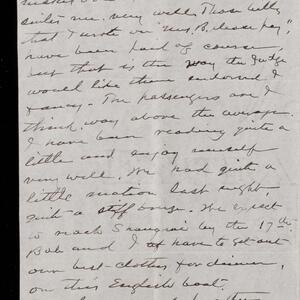 suits me very well. Those bills
that I wrote on "Mrs. B. please pay",
have been paid of course,
but that is the way the Judge
would like them endorsed I
fancy. The passengers are I
think, way above the average.
I have been reading quite a
little and enjoy myself
very well. We had quite a
little motion last night.
quite a stiff breeze. We expect
to reach Shanghai by the 17th.
Bob and I have to get out
our best clothes for dinner,
on this English boat.